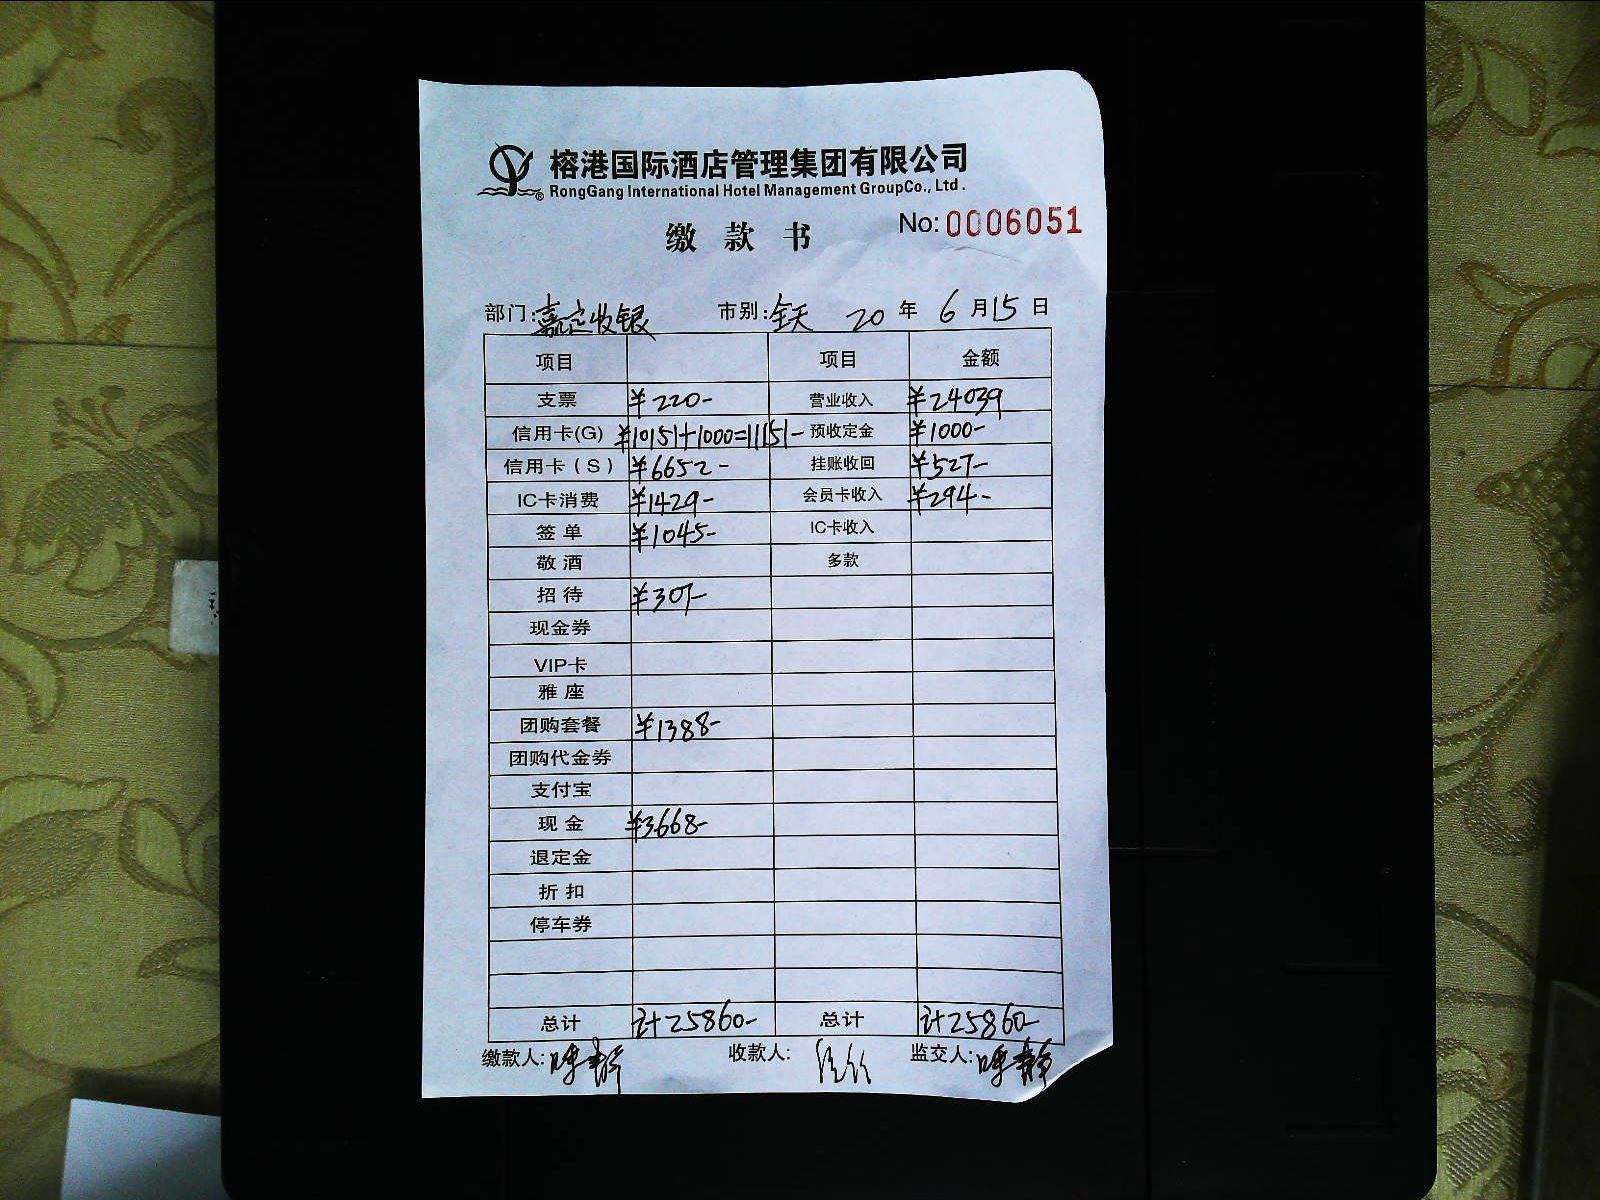 榕港国际酒店管理集团有限公司
RongGang International Hotel Management GroupCo., Ltd.
缴款书 No:0006051
部门:嘉定收银 市别:全天 20 年 6 月 15 日
项目 项目 金额
支票 ¥220- 营业收入 ¥24039
信用卡(G) ¥10151+1000=11151- 预收定金 ¥1000-
信用卡(S) ¥6652- 挂账收回 ¥527-
IC卡消费 ¥1429- 会员卡收入 ¥294-
签单 ¥1045- IC卡收入
敬酒 多款
招待 ¥307-
现金券
VIP卡
雅座
团购套餐 ¥1388-
团购代金券
支付宝
现金 ¥3668-
退定金
折扣
停车券
总计 计25860- 总计 计25860-
缴款人: 收款人: 监交人: